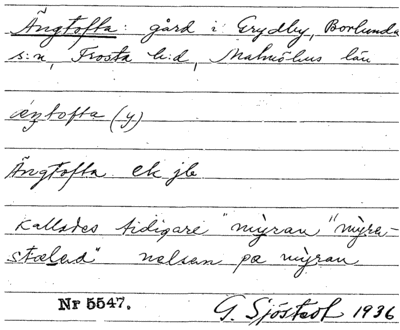 Ängtofta: gård i Grydby, Borlunda
s:n, Frosta h:d, Malmöhus län
(y)
Ängtofta ek jb
Kallades tidigare "mỳran" "mỳra-
stælad" nelsen pæ mỳran
Nr 5547. G. Sjöstedt 1936